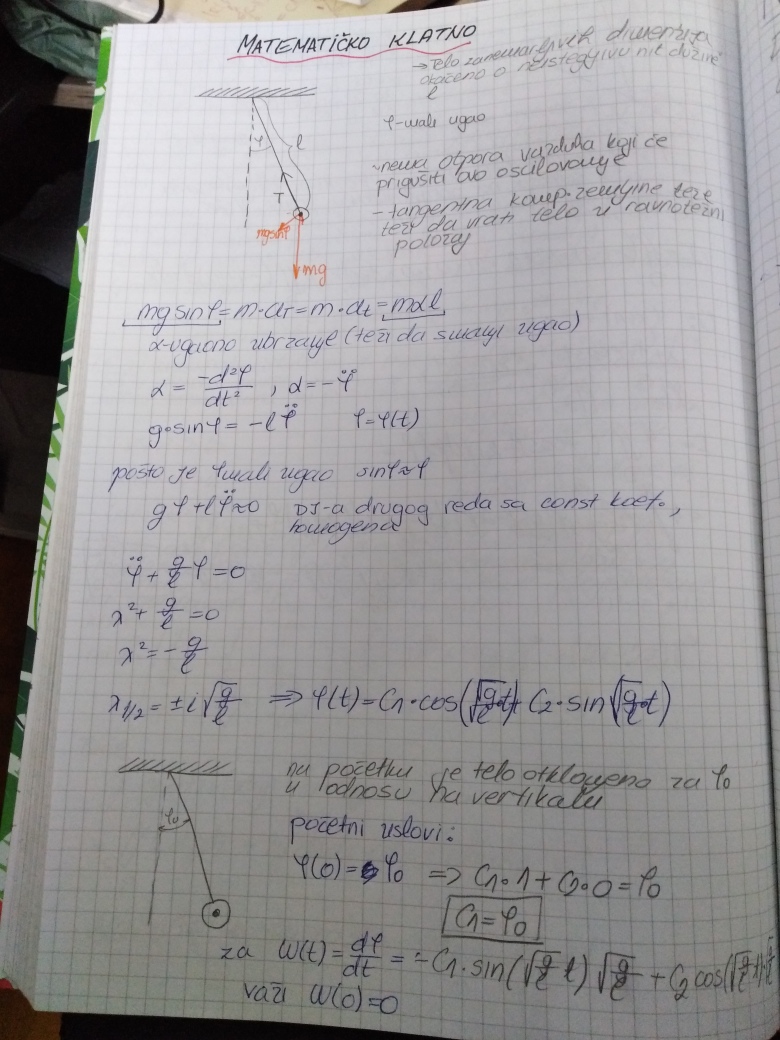 MATEMATIČKO KLATNO
→ telo zanemarljivih dimenzija
okačeno o neistegljivu nit dužine
l
φ-mali ugao
-nema otpora vazduha koji će
prigušiti ovo oscilovanje
-tangentna komp. zemljine teže
teži da vrati telo u ravnotežni
položaj
φ
l
T
mgsinφ
mg
mg sinφ = m·aτ = m·at = mαl
α-ugaono ubrzanje (teži da smanji ugao)
α = -d²φ/dt² , α = -φ̈
g·sinφ = -lφ̈ φ=φ(t)
pošto je φ mali ugao sinφ≈φ
gφ+lφ̈≈0 DJ-a drugog reda sa const koef.,
homogena
φ̈ + g/l φ = 0
λ² + g/l = 0
λ² = - g/l
λ1/2 = ±i√(g/l) ⇒ φ(t) = C1·cos(√(g/l)·t) + C2·sin(√(g/l)·t)
na početku je telo otklonjeno za φ0
u odnosu na vertikalu
φ0
početni uslovi:
φ(0) = φ0 ⇒ C1·1 + C2·0 = φ0
C1 = φ0
za ω(t) = dφ/dt = -C1·sin(√(g/l) t) √(g/l) + C2 cos(√(g/l) t)·√
važi ω(0)=0